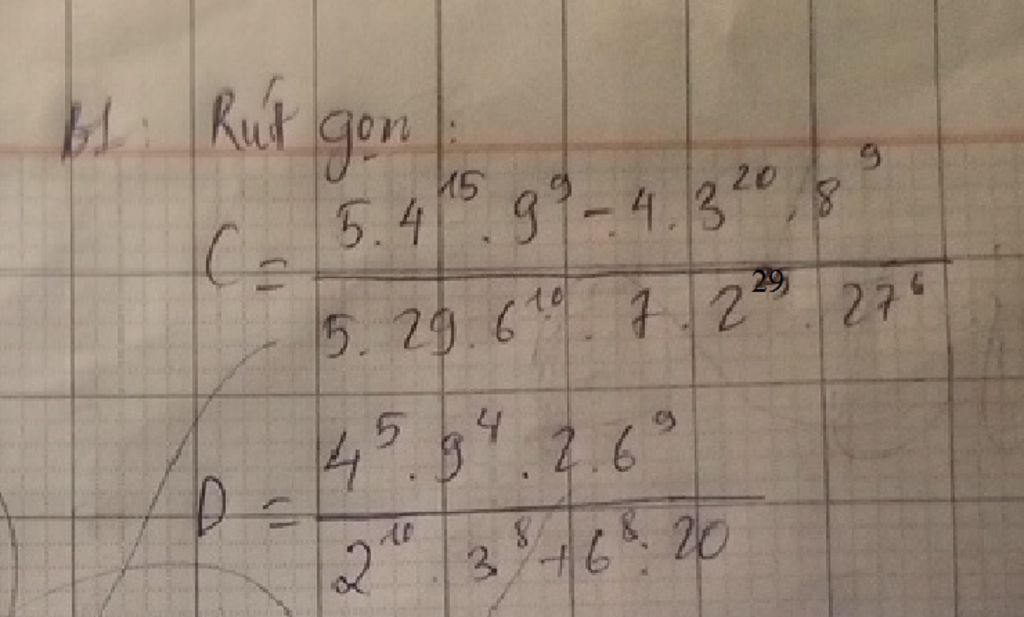 B1: Rút gọn:
C = \frac{5.4^{15}.9^{9} - 4.3^{20}.8^{9}}{5.29.6^{10}.7.2^{29}.27^{6}}
D = \frac{4^{5}.9^{4}.2.6^{9}}{2^{10}.3^{8}+6^{8}.20}